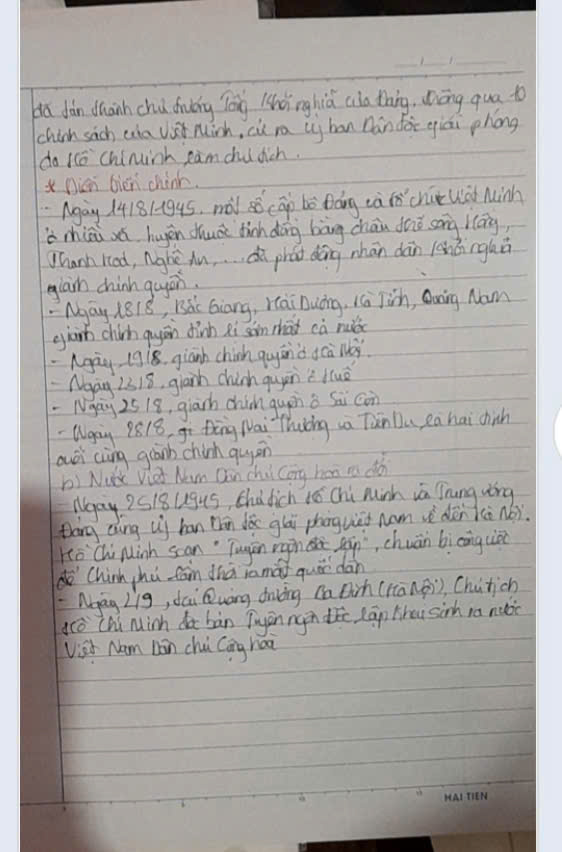 đã tán thành chủ trương Tổng khởi nghĩa của Đảng, thông qua 10
chính sách của Việt Minh, cử ra uỷ ban Dân tộc giải phóng
do Hồ Chí Minh làm chủ tịch.
* Diễn biến chính.
- Ngày 14/8/1945, một số cấp bộ Đảng và tổ chức Việt Minh
ở nhiều xã, huyện thuộc tỉnh đồng bằng châu thổ sông Hồng,
Thanh Hoá, Nghệ An, ... đã phát động nhân dân khởi nghĩa
giành chính quyền.
- Ngày 18/8, Bắc Giang, Hải Dương, Hà Tĩnh, Quảng Nam
giành chính quyền tỉnh lị sớm nhất cả nước
- Ngày 19/8 giành chính quyền ở Hà Nội.
- Ngày 23/8, giành chính quyền ở Huế
- Ngày 25/8, giành chính quyền ở Sài Gòn
- Ngày 28/8, Đồng Nai Thượng và là hai tỉnh
cuối cùng giành chính quyền
b) Nước Việt Nam Dân chủ Cộng hoà ra đời
- Ngày 25/8/1945, Chủ tịch Hồ Chí Minh và Trung ương
Đảng cùng uỷ ban Dân tộc giải phóng Việt Nam về đến Hà Nội.
Hồ Chí Minh soạn "Tuyên ngôn độc lập", chuẩn bị công việc
để Chính phủ lâm thời ra mắt quốc dân
- Ngày 2/9, tại Quảng trường Ba Đình (Hà Nội), Chủ tịch
Hồ Chí Minh đọc bản Tuyên ngôn độc lập khai sinh ra nước
Việt Nam Dân chủ Cộng hoà
HAI TIEN